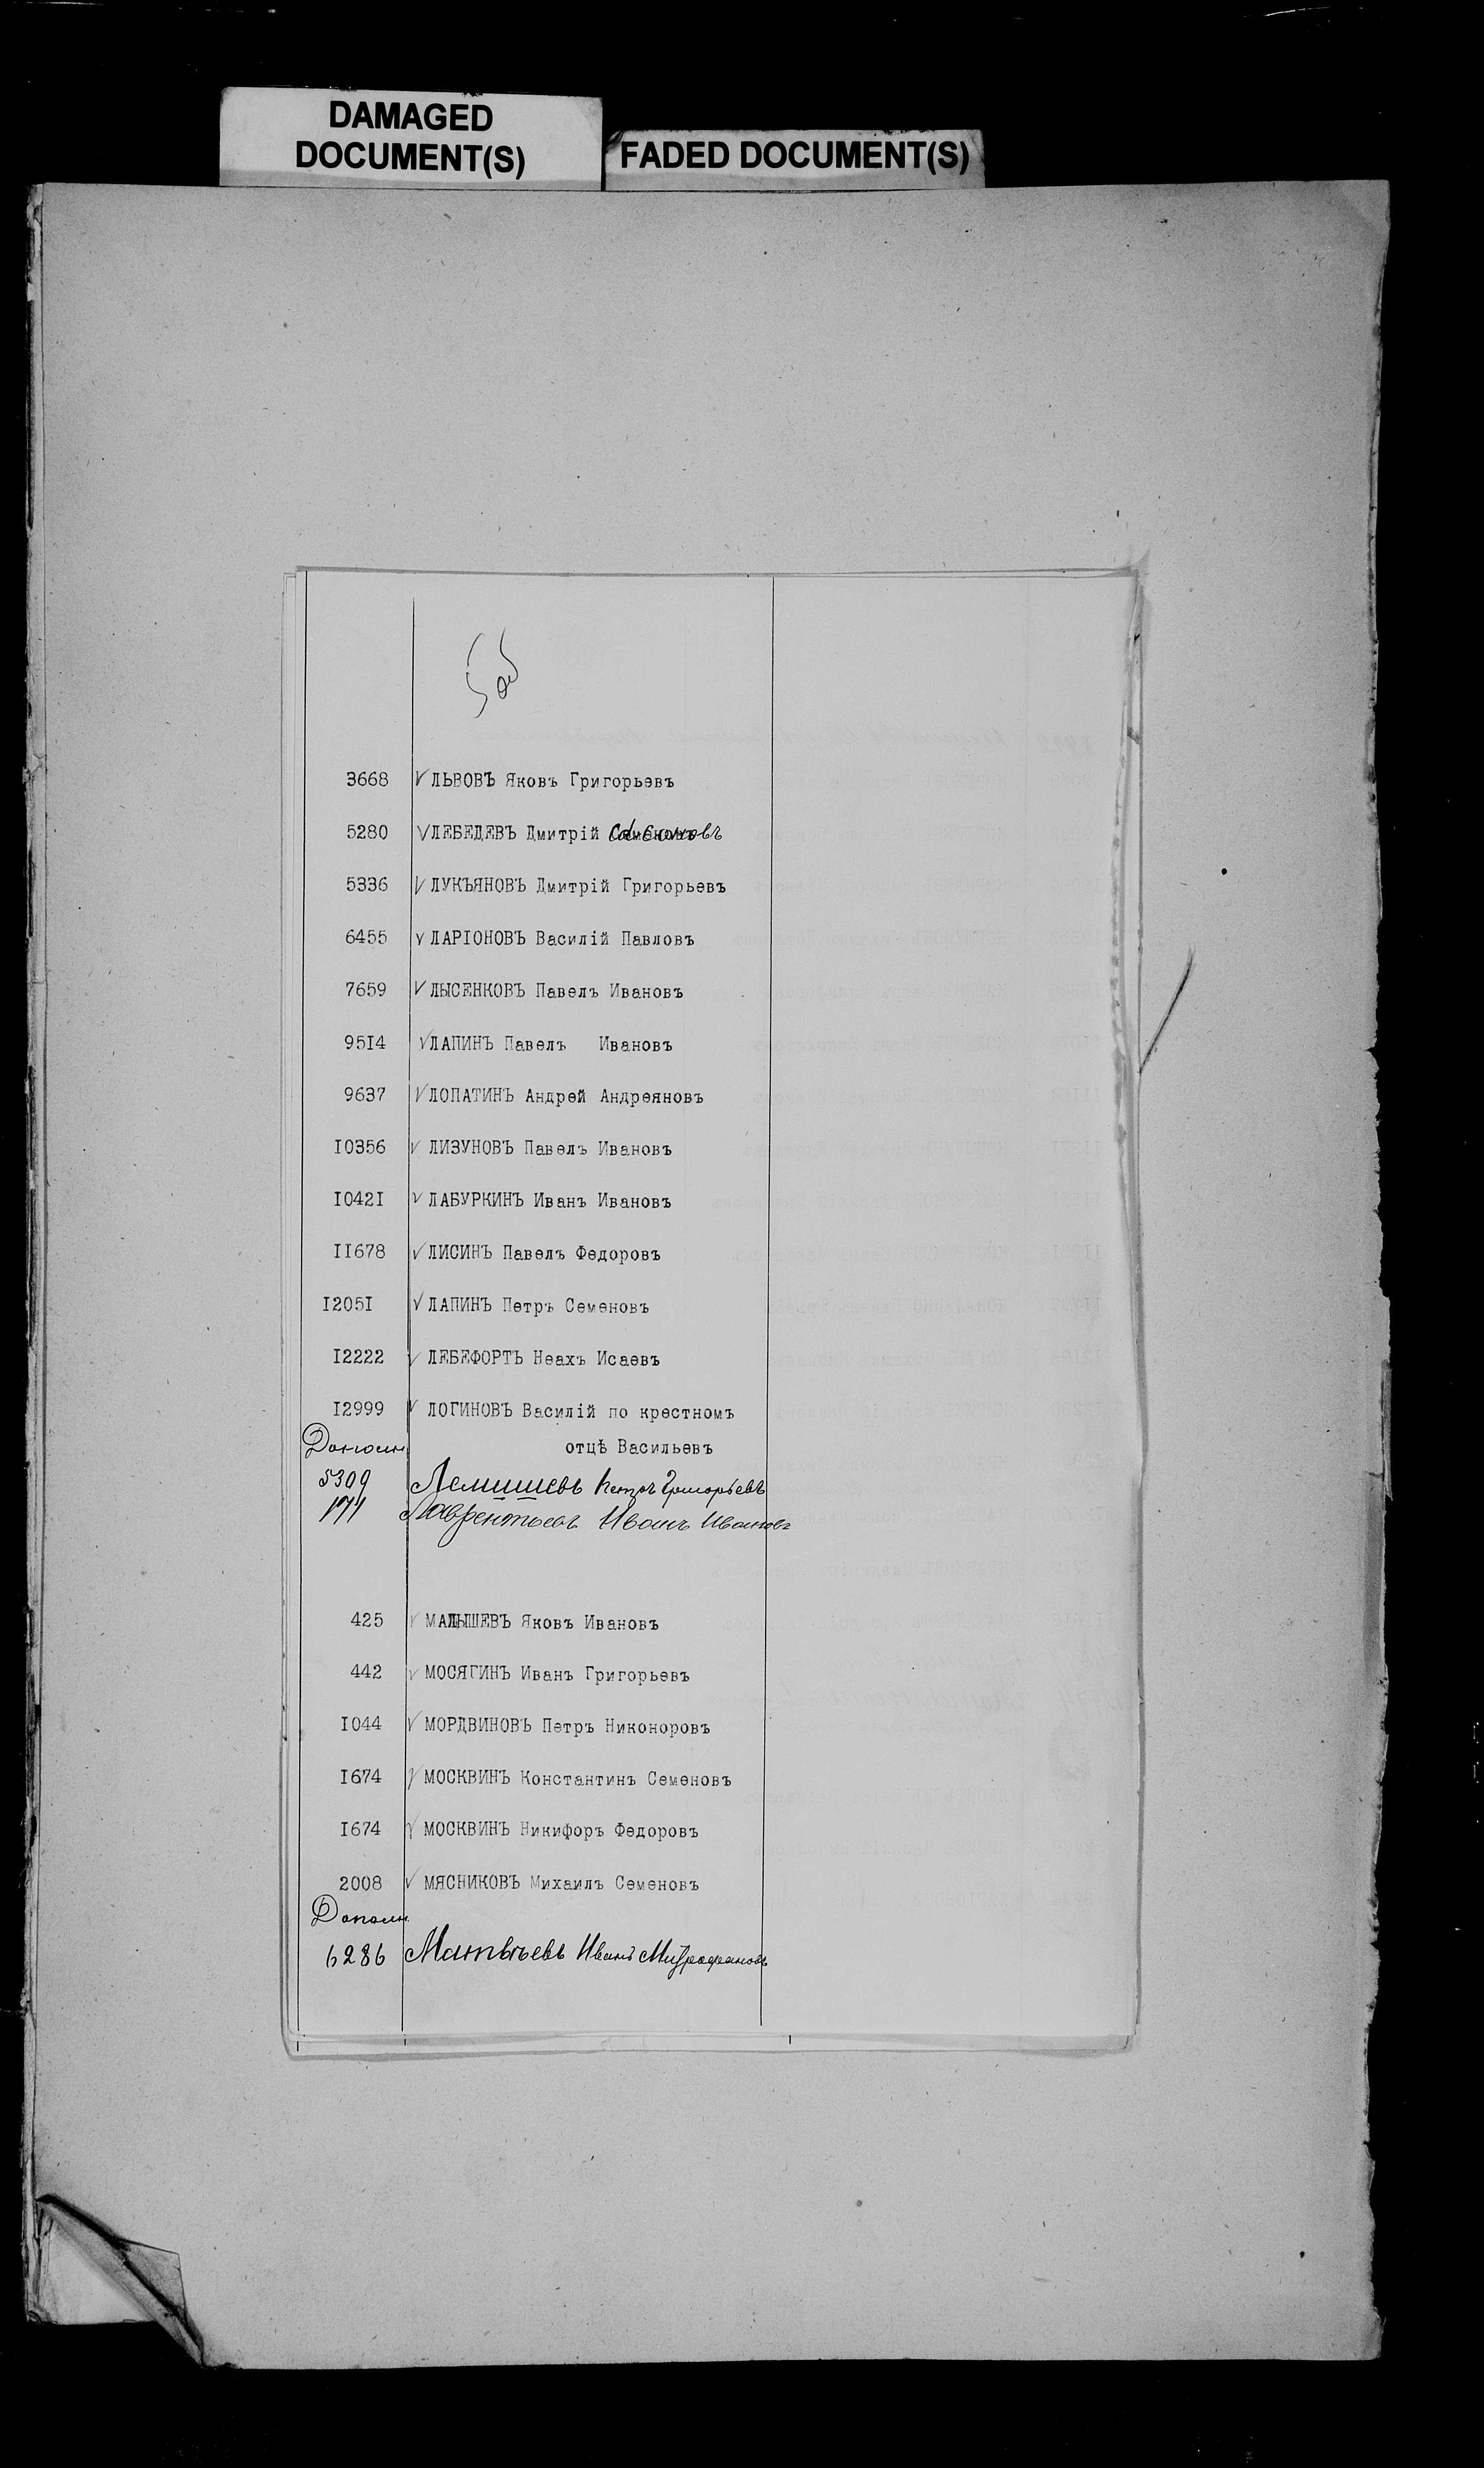 DAMAGED
DOCUMENT(S)
FADED DOCUMENT(S)
3668 ЛЬВОВЪ Яковъ Григорьевъ
5280 ЛЕБЕДЕВЪ Дмитрій
5336 ЛУКЪЯНОВЪ Дмитрій Григорьевъ
6455 ЛАРІОНОВЪ Василій Павловъ
7659 ЛЫСЕНКОВЪ Павелъ Ивановъ
95I4 ЛАПИНЪ Павелъ Ивановъ
9637 ЛОПАТИНЪ Андрей Андреяновъ
I0356 ЛИЗУНОВЪ Павелъ Ивановъ
I042I ЛАБУРКИНЪ Иванъ Ивановъ
II678 ЛИСИНЪ Павелъ Федоровъ
I205I ЛАПИНЪ Петръ Семеновъ
I2222 ЛЕБЕФОРТЬ Неахъ Исаевъ
I2999 ЛОГИНОВЪ Василій по крестномъ
отцѣ Васильевъ
Дополн
5309 Лемишевъ Петръ Григорьевъ
171 Лаврентьевъ Иванъ Ивановъ
425 МАЛЫШЕВЪ Яковъ Ивановъ
442 МОСЯГИНЪ Иванъ Григорьевъ
I044 МОРДВИНОВЪ Петръ Никоноровъ
I674 МОСКВИНЪ Константинъ Семеновъ
I674 МОСКВИНЪ Никифоръ Федоровъ
2008 МЯСНИКОВЪ Михаилъ Семеновъ
Дополн.
6286 Матвѣевъ Иванъ Митрофановъ